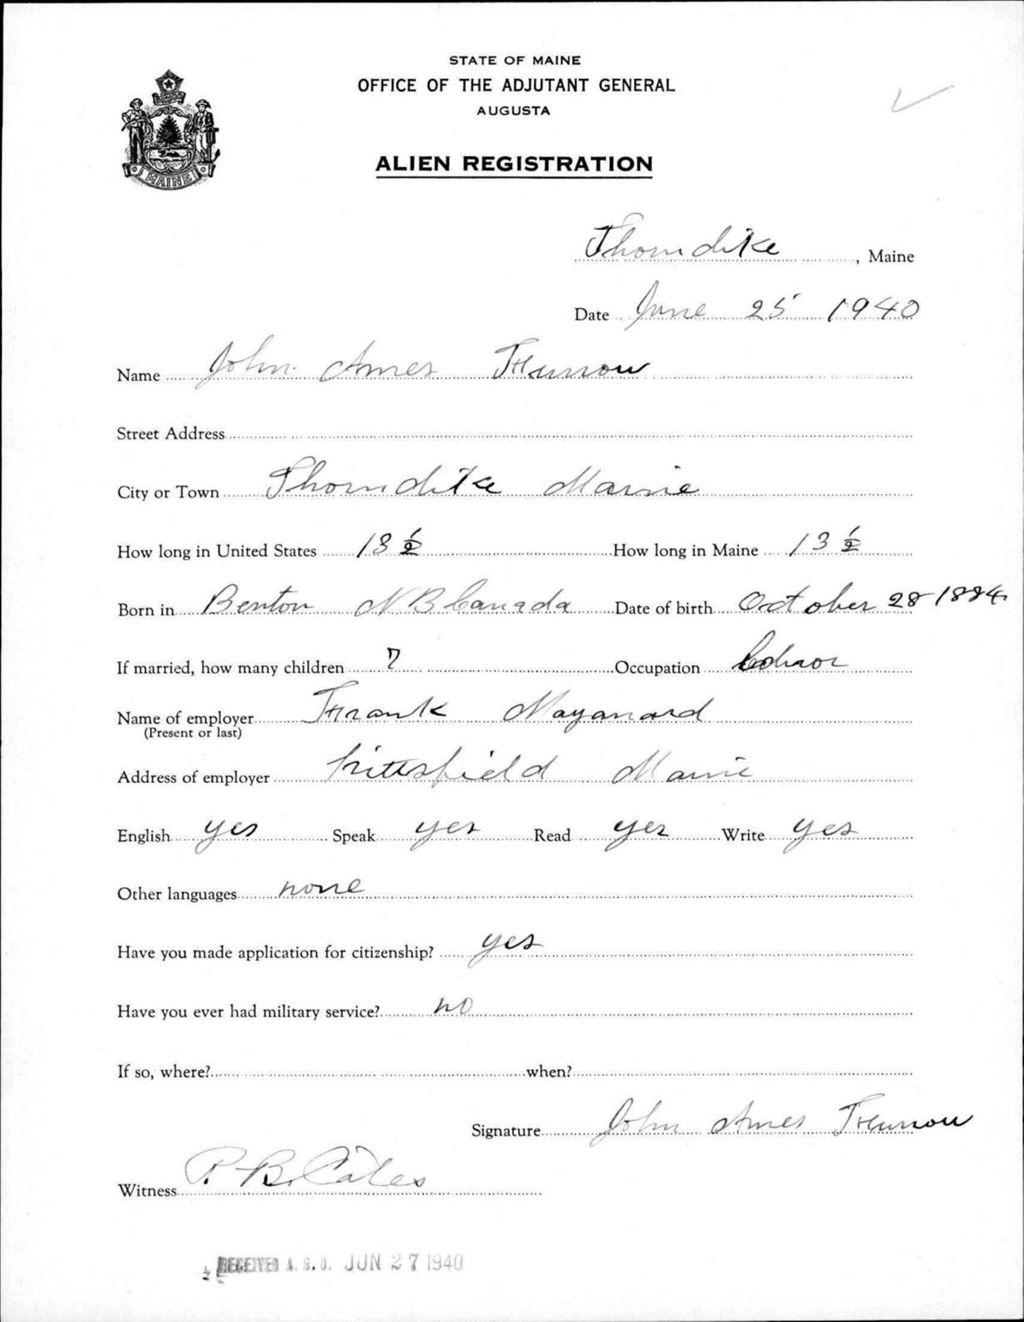 STATE OF MAINE
OFFICE OF THE ADJUTANT GENERAL
AUGUSTA
ALIEN REGISTRATION
MAINE
Thorndike, Maine
Date June 25 1940
Name John Ames
Street Address
City or Town Thorndike Maine
How long in United States 13 1/2 How long in Maine 13 1/2
Born in Benton N B Canada Date of birth October 28 1884
If married, how many children 7 Occupation
Name of employer Frank Mayanard
(Present or last)
Address of employer Pittsfield Maine
English yes Speak yes Read yes Write yes
Other languages none
Have you made application for citizenship? yes
Have you ever had military service? no
If so, where? when?
Signature John Ames
Witness P. B. Cates
RECEIVED A. G. O. JUN 27 1940